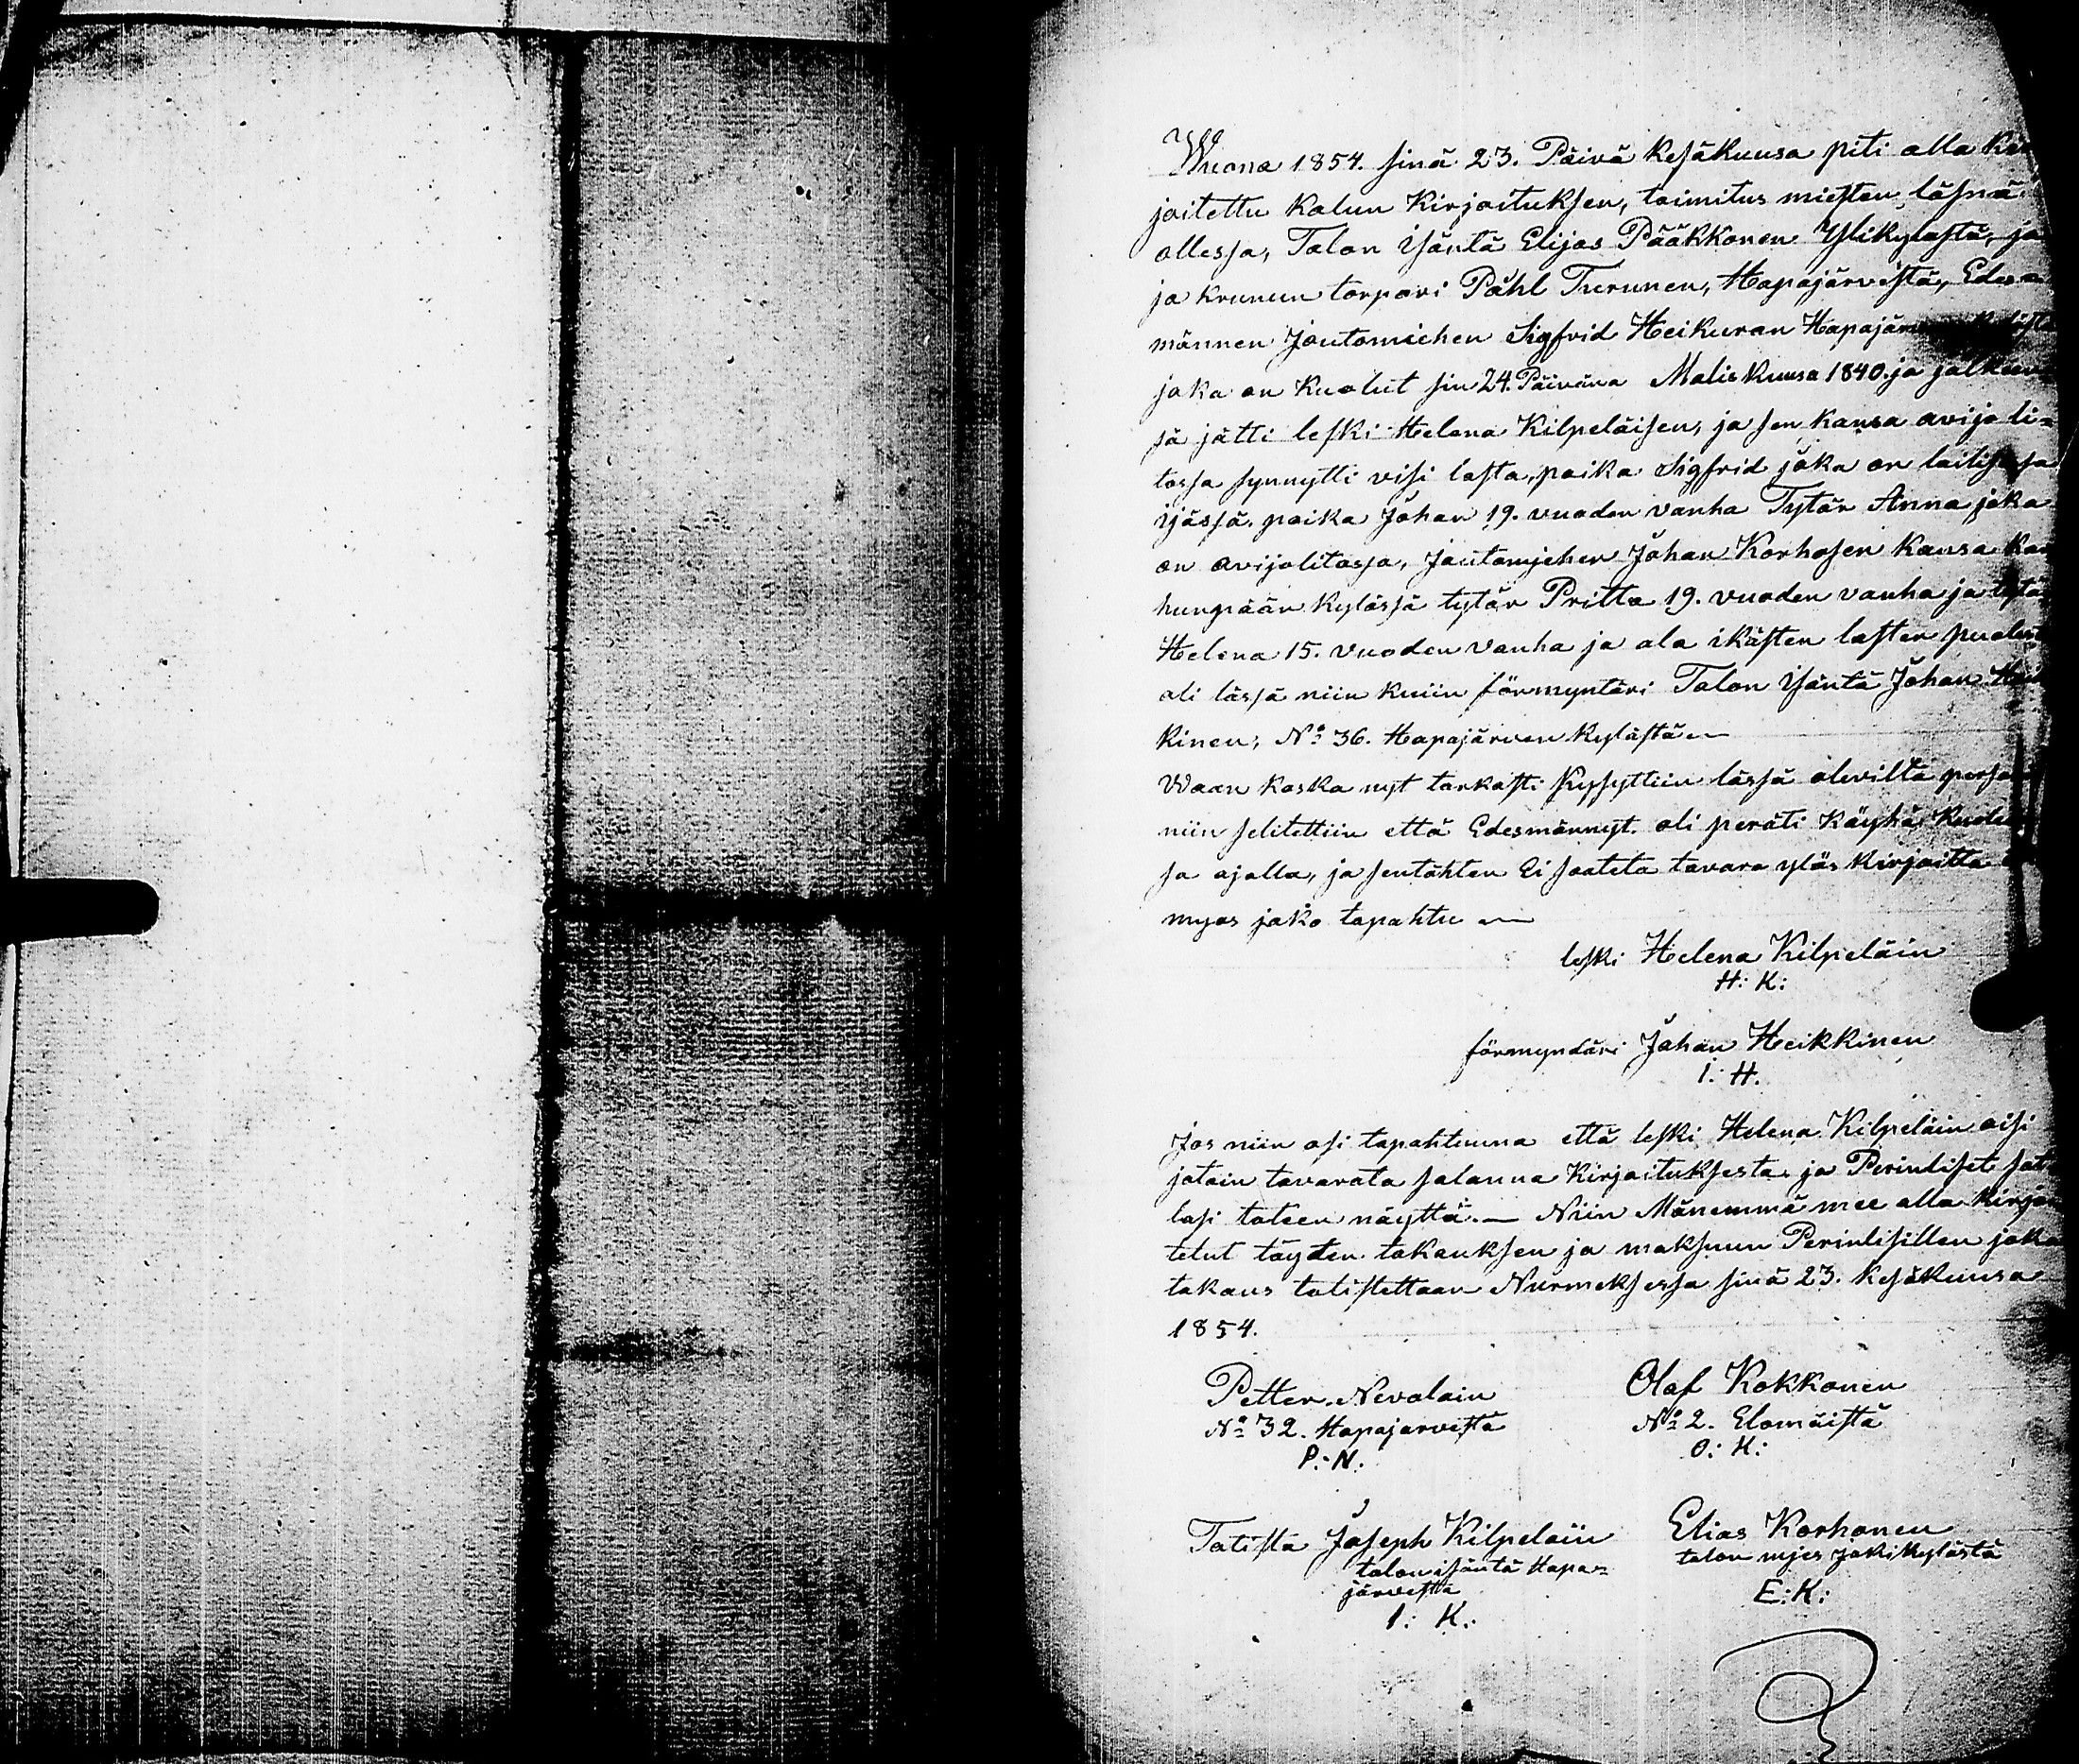 Wuona 1854. sinä 23. Päivä kesäkuusa piti alla kir
joitettu kalun kirjoituksen, toimitus miesten läsnä
ollessa, Talon isäntä Elijas Pääkkonen Ylikylästä, ja
ja krunun torpari Påhl Turunen, Hapajärvestä, Edes-
männen Joutomiehen Sigfrid Heikuran
joka on kuolut sin 24. Päivänä Maliskuusa 1840. ja jälkeen
sä jätti leski Helena Kilpeläisen, ja sen kansa avijoli-
tossa synnytti visi lasta, poika Sigfrid joka on lailisessa
ijässä. poika Johan 19. vuoden vanha Tytär Anna joka
on avijolitossa, Joutomjehen Johan Korhosen kansa Kar
hunpään kylässä tytär Pritta 19. vuoden vanha ja tytär
Helena 15. vuoden vanha ja ala ikästen lasten puolest
oli lässä niin kuiin förmyntäri Talon isäntä Johan Heik
kinen, No 36. Hapajärven kylästä
Waan koska nyt tarkasti kysyttiin lässä olevilta
niin selitettiin että Edesmännyt. oli peräti käyhä kuole
sa ajalla, ja sentähten Ei saateta tavara ylös kirjoitta
myos jako tapahtu
leski Helena Kilpeläin
H: K:
förmyndäri Johan Heikkinen
I: H.
Jos niin osi tapahtumna että leski Helena Kilpeläin oisi
jotain tavarata salanna kirjoituksesta ja Perinliset sat
tasi toteen näyttä. — Niin Mänemmä mee alla kirjoi
tetut täyten takauksen ja maksuun Perinlisillen joka
takaus totistettaan Nurmeksessa sinä 23. kesäkuusa
1854.
Petter Nevolain
No 32. Hapajarvestä
P: N.
Olaf Kokkonen
No 2. Elomäistä
O: K:
Totista Joseph Kilpeläin
talon isäntä Hapa-
järvestä
I: K:
Elias Korhonen
talon mjes Jokikylästä
E: K: